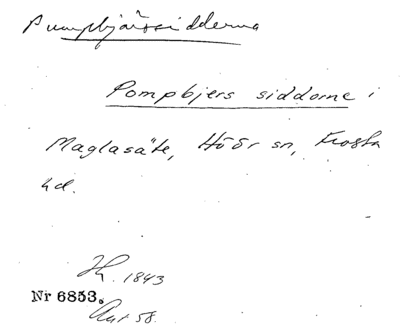 Pumpbjärssidderna
Pompbjers siddorne i
Maglasäte, Höör sn, Frosta
hd.
1843
Nr 6853.
58.